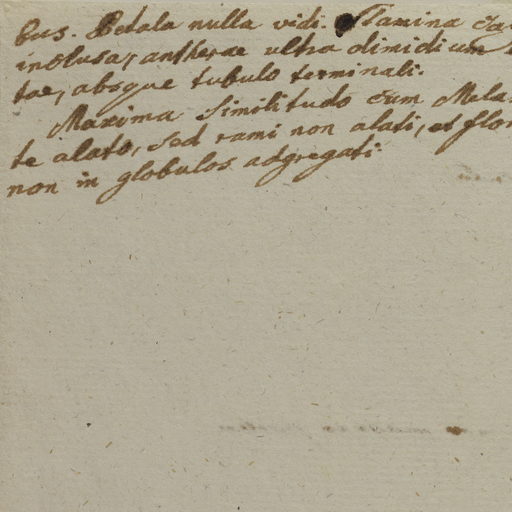 bus. Petala nulla vidi. Stamina
inclusa, antherae ultra dimidium
tae, absque tubulo terminali.
Maxima similitudo cum Mela
te alato, sed rami non alati, et flor
non in globulos adgregati.